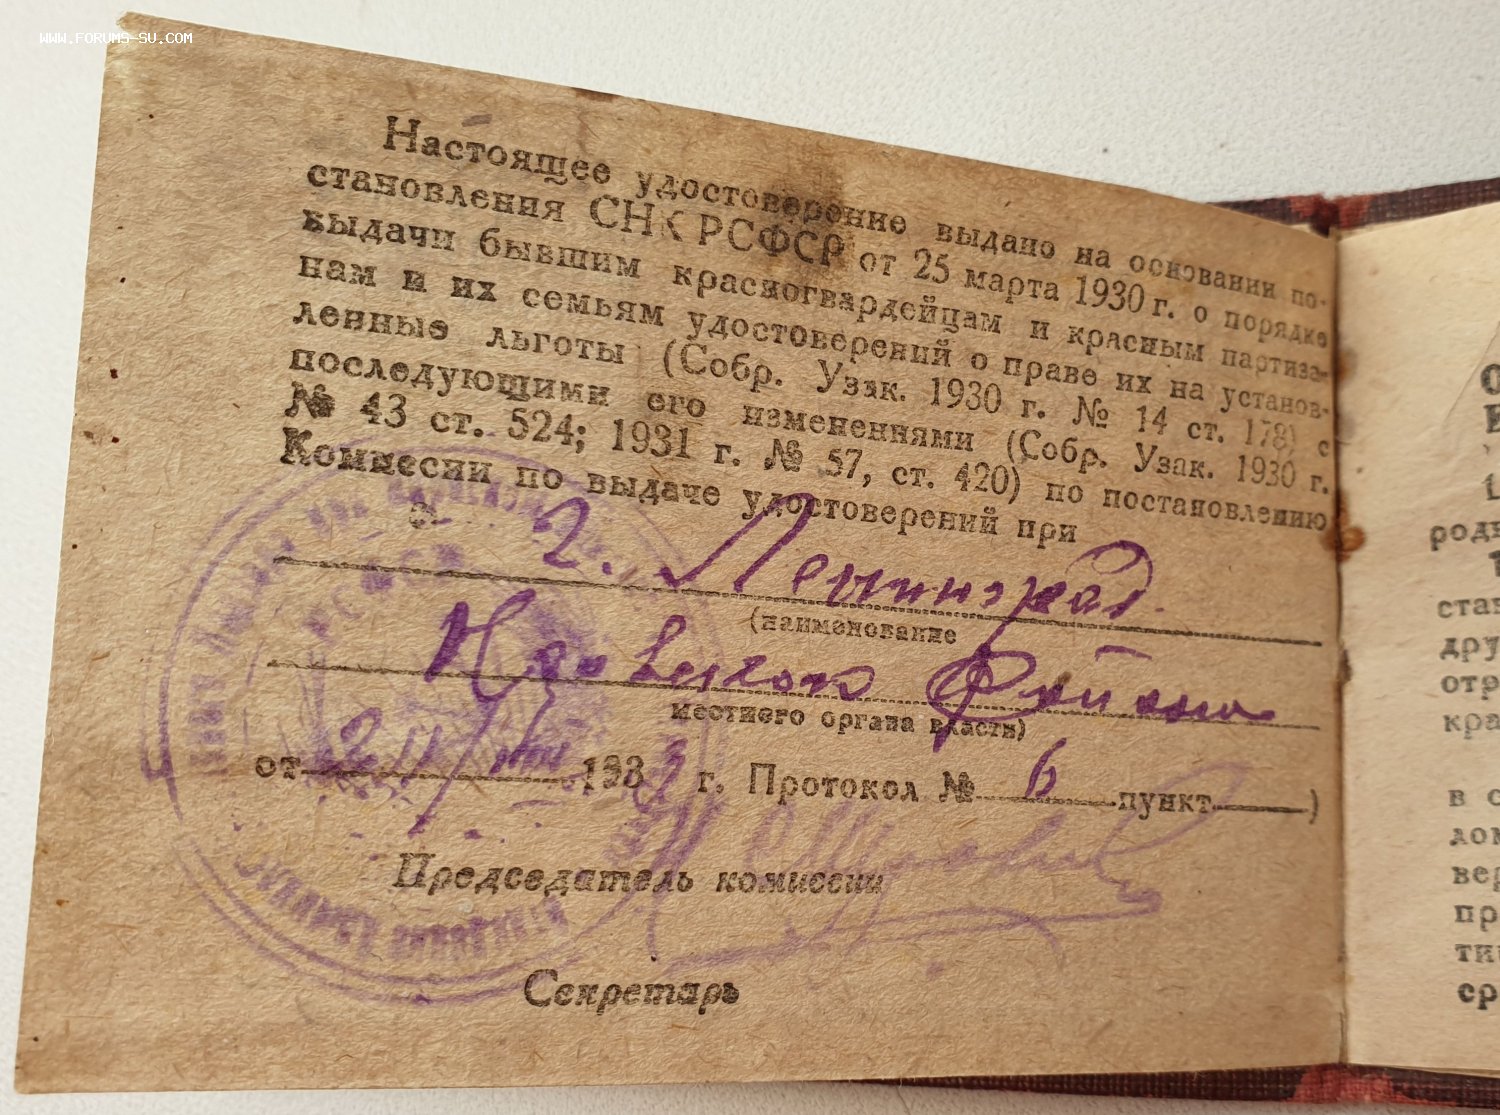 WWW.FORUMS-SU.COM
Настоящее удостоверение выдано на основании по-
становления СНК РСФСР от 25 марта 1930 г. о порядке
выдачи бывшим красногвардейцам и красным партиза-
нам и их семьям удостоверений о праве их на установ-
ленные льготы (Собр. Узак. 1930 г. № 14 ст. 178) с
последующими его изменениями (Собр. Узак. 1930 г.
№ 43 ст. 524; 1931 г. № 57, ст. 420) по постановлению
Комиссии по выдаче удостоверений при
г. Ленинград
(наименование
местного органа власти)
от 2 193 г. Протокол № 6 пункт )
Председатель комиссии
Секретарь
РСФСР
родн
став
друг
отр
кра
в с
лом
вер
пр
ти
ср